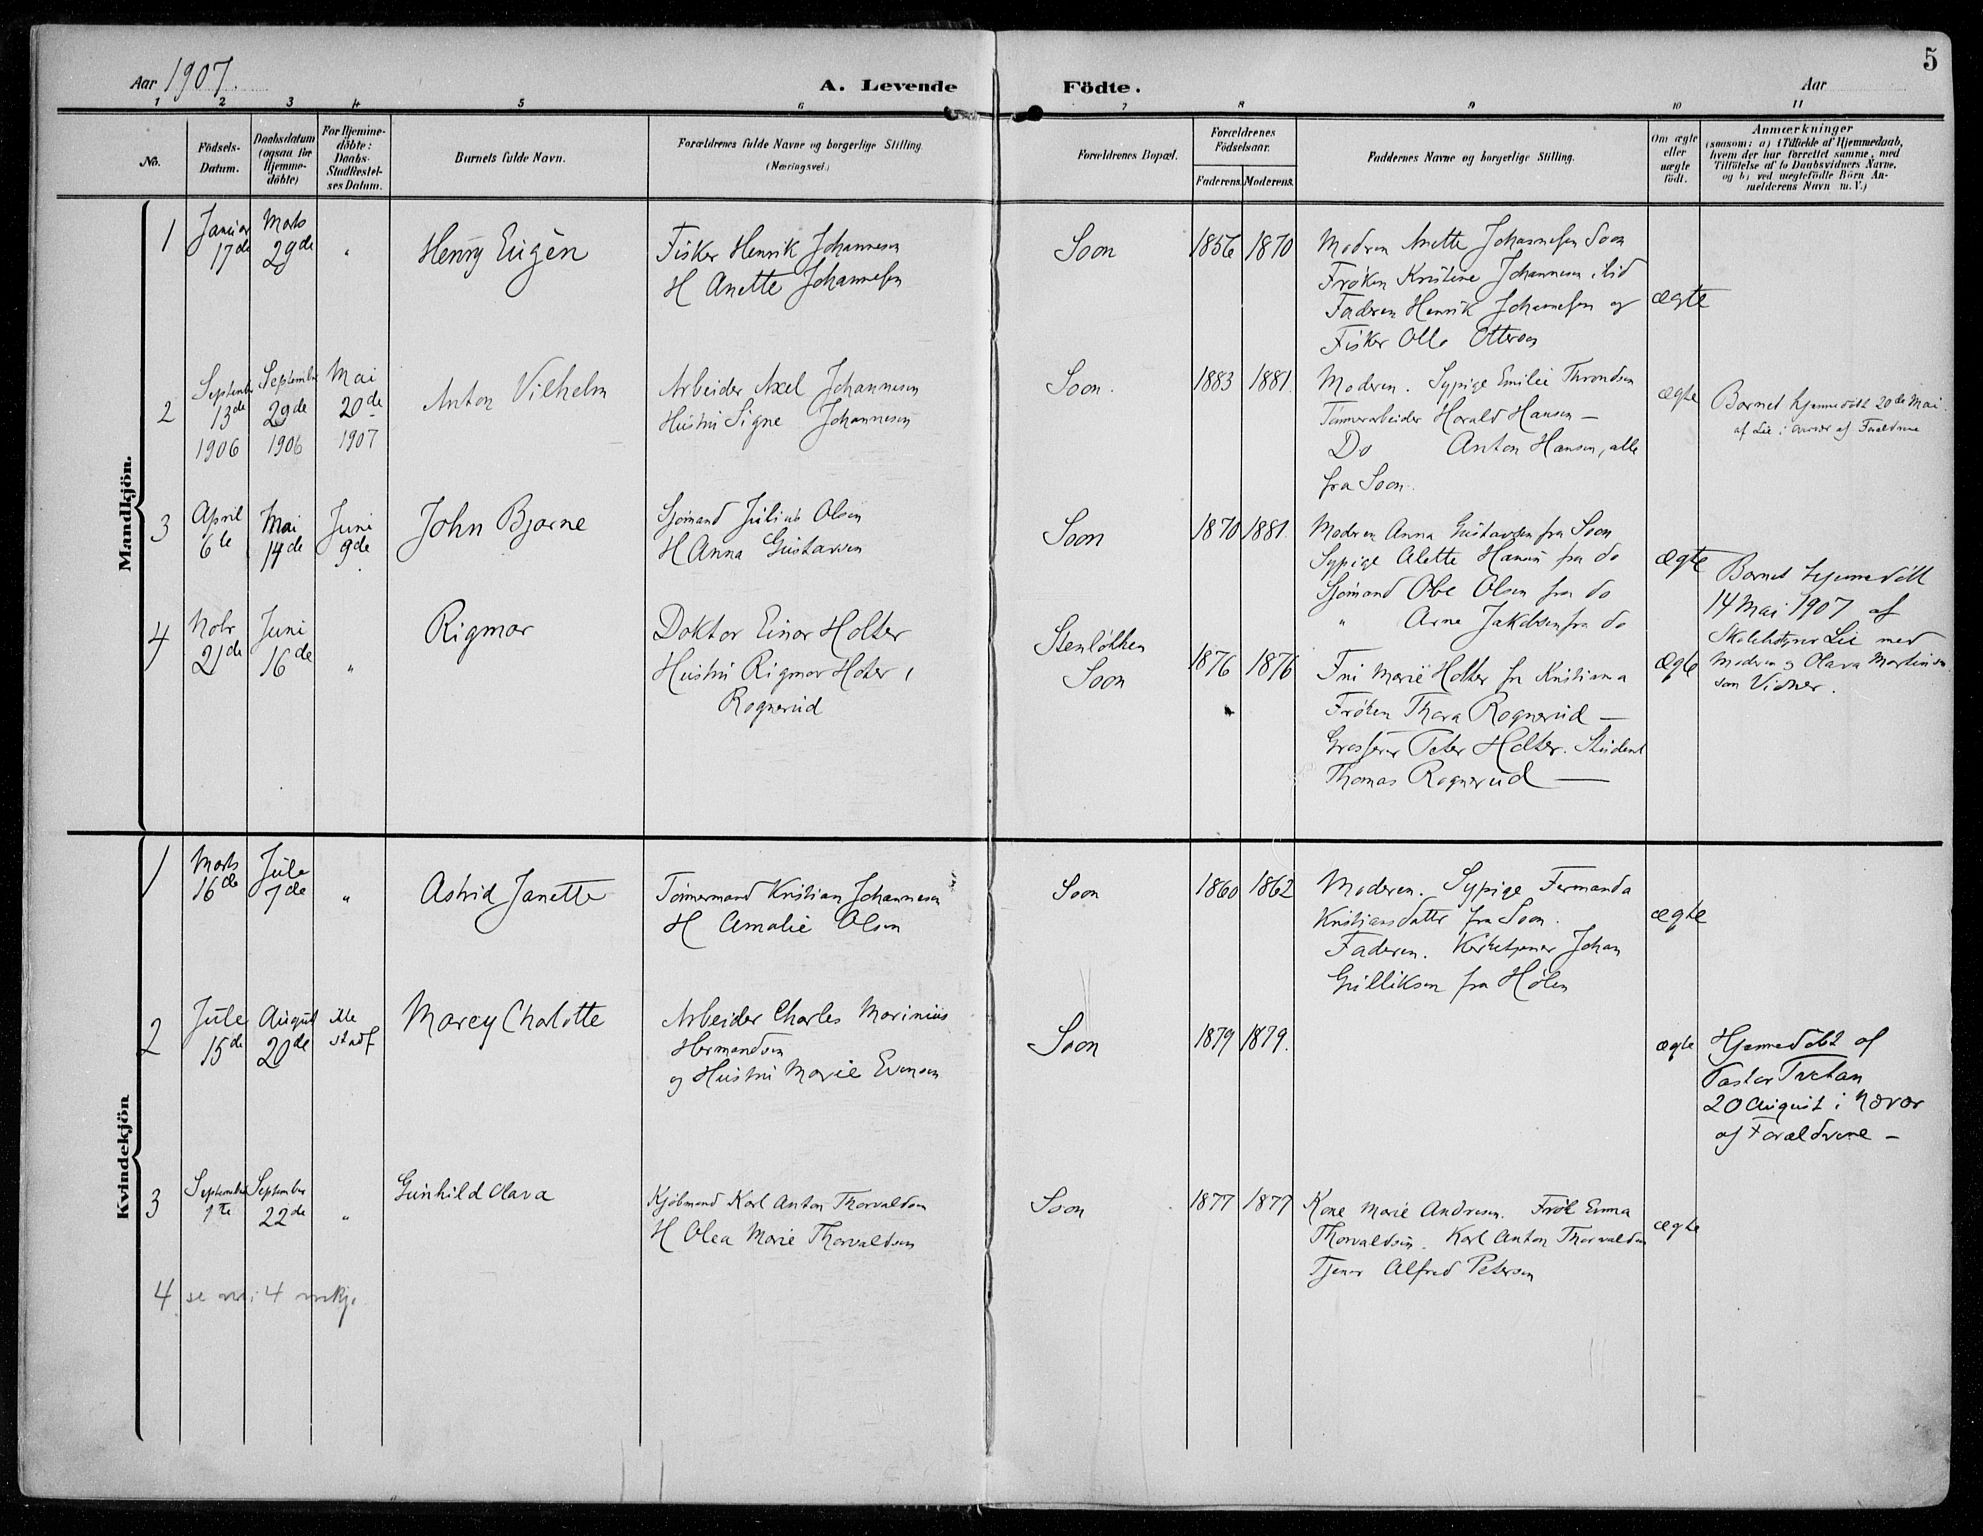 5
Aar 1907. A. Levende Födte. Aar
1 2 3 4 5 6 7 8 9 10 11
No. Födsels-Datum. Daabsdatum (ogsaa for Hjemme-döbte) For Hjemme-döbte: Daabs-Stadfæstel-ses Datum. Barnets fulde Navn. Forældrenes fulde Navne og borgerlige Stilling. (Næringsvei.) Forældrenes Bopæl. Forældrenes Födselsaar. Faderens. Moderens. Faddernes Navne og borgerlige Stilling. Om ægte eller uægte födt. Anmærkninger
(saasom: a) i Tilfælde af Hjemmedaab,
hvem der har forrettet samme, med
Tilföielse af to Daabsvidners Navne.
og b) ved uegtefödte Börn An-
melderens Navn m. V.)
Mandkjön.
1 Januar 17de Marts 29de " Henry Eugèn Fisker Henrik Johannesen
H Anette Johannesen
Soon 1856 1870 Modren Anette Johannesen Soon
Frøken Kristine Johannesen
Faderen Henrik Johannesen og
Fisker Olle Ottersen
ægte
2 September 13de 1906 September 29de 1906 Mai 20de 1907 Anton Vilhelm Arbeider Axel Johannesen
Hustru Signe Johannesen
Soon. 1883 1881. Moderen. Sypige Emilie Throndsen
Tømmerarbeider Harald Hansen —
Do Anton Hansen, alle
fra Soon.
ægte Barnet hjemmedöbt 20de Mai
af Lie i nærvær af Forældrene
3 April 6te Mai 14de Juni 9de John Bjarne Sjømand Julius Olsen
H Anna Gustavsen
Soon 1870 1881. Moderen Anna Gustavsen fra Soon
Sypige Alette Hansen fra do
Sjømand Olse Olsen fra do
" Arne Jakobsen fra do
ægte Barnet hjemmedöbt
14 Mai 1907 af
Skolebestyrer Lie med
Moderen og Olava Martinsen
som Vidner.
4 Nobr 21de Juni 16de " Rigmor Doktor Einar Holter
Hustru Rigmor Holter,
Rognerud
Stenløkken
Soon
1876 1876 Fru Marie Holter fra Kristiania
Frøken Thora Rognerud —
Grosserer Peter Holter. Student
Thomas Rognerud —
ægte
Kvindekjön
1 Marts 16de Jule 7de " Astrid Janette Tømmermand Kristian Johannesen
H Amalie Olsen
Soon 1860 1862 Moderen. Sypige Fernanda
Kristiansdatter fra Soon.
Faderen. Kirketjener Johan
Gulliksen fra Hølen
ægte
2 Jule 15de August 20de ikke stadf Marey Chalotte Arbeider Charles Marinius
Hermandsen
og Hustru Marie Evensen
Soon 1879 1879. ægte Hjemmedøbt af
Pastor Tvetan
20 August i Nærvær
af Forældrene —
3 September 1te September 22de " Gunhild Olava Kjøbmand Karl Anton Thorvaldsen
H Olea Marie Thorvaldsen
Soon 1877 1877 Kone Marie Andresen. Frök Emma
Thorvaldsen. Karl Anton Thorvaldsen
Tjener Alfred Petersen
ægte
4 se nr. 4 mkj.